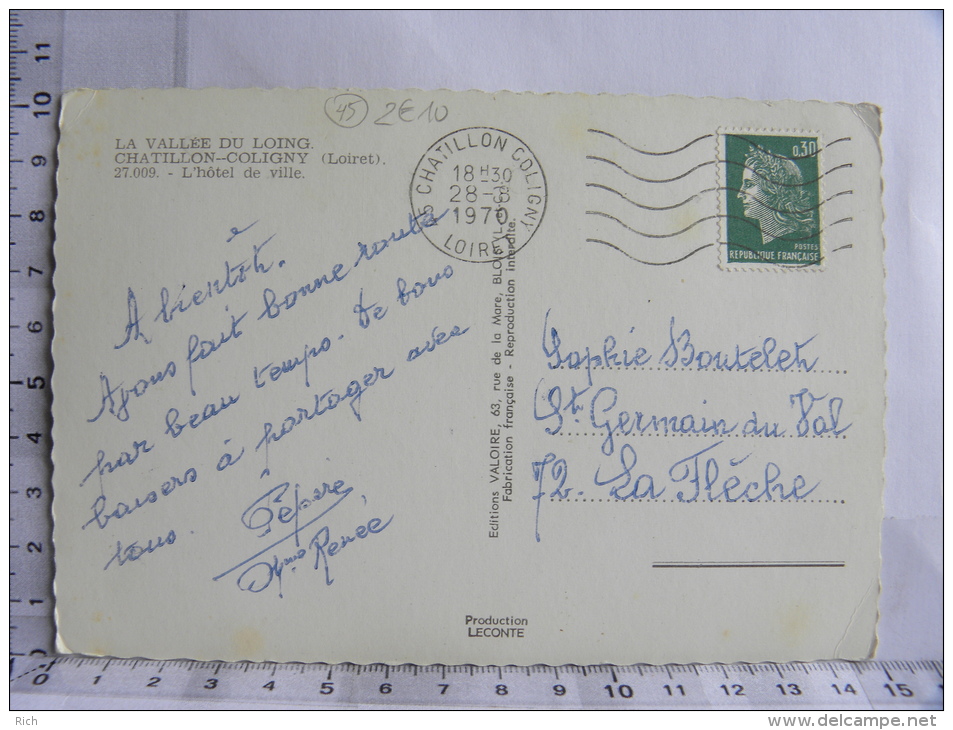 45 2€10
LA VALLÉE DU LOING.
CHATILLON--COLIGNY (Loiret).
27.009. - L'hôtel de ville.
45 CHATILLON COLIGNY
18H30
28-8
1970
LOIRET
0,30
POSTES
REPUBLIQUE FRANÇAISE
A bientôt.
Avons fait bonne route
par beau temps. De bons
baisers à partager avec
tous. Pépère
Mme Renée
Editions VALOIRE, 63, rue de la Mare, BLOIS
Fabrication française - Reproduction interdite.
Sophie Boutelet
St Germain du Val
72. La Flèche
Production
LECONTE
0 1 2 3 4 5 6 7 8 9 10 11
0 1 2 3 4 5 6 7 8 9 10 11 12 13 14 15 16
Rich
delcampe.net